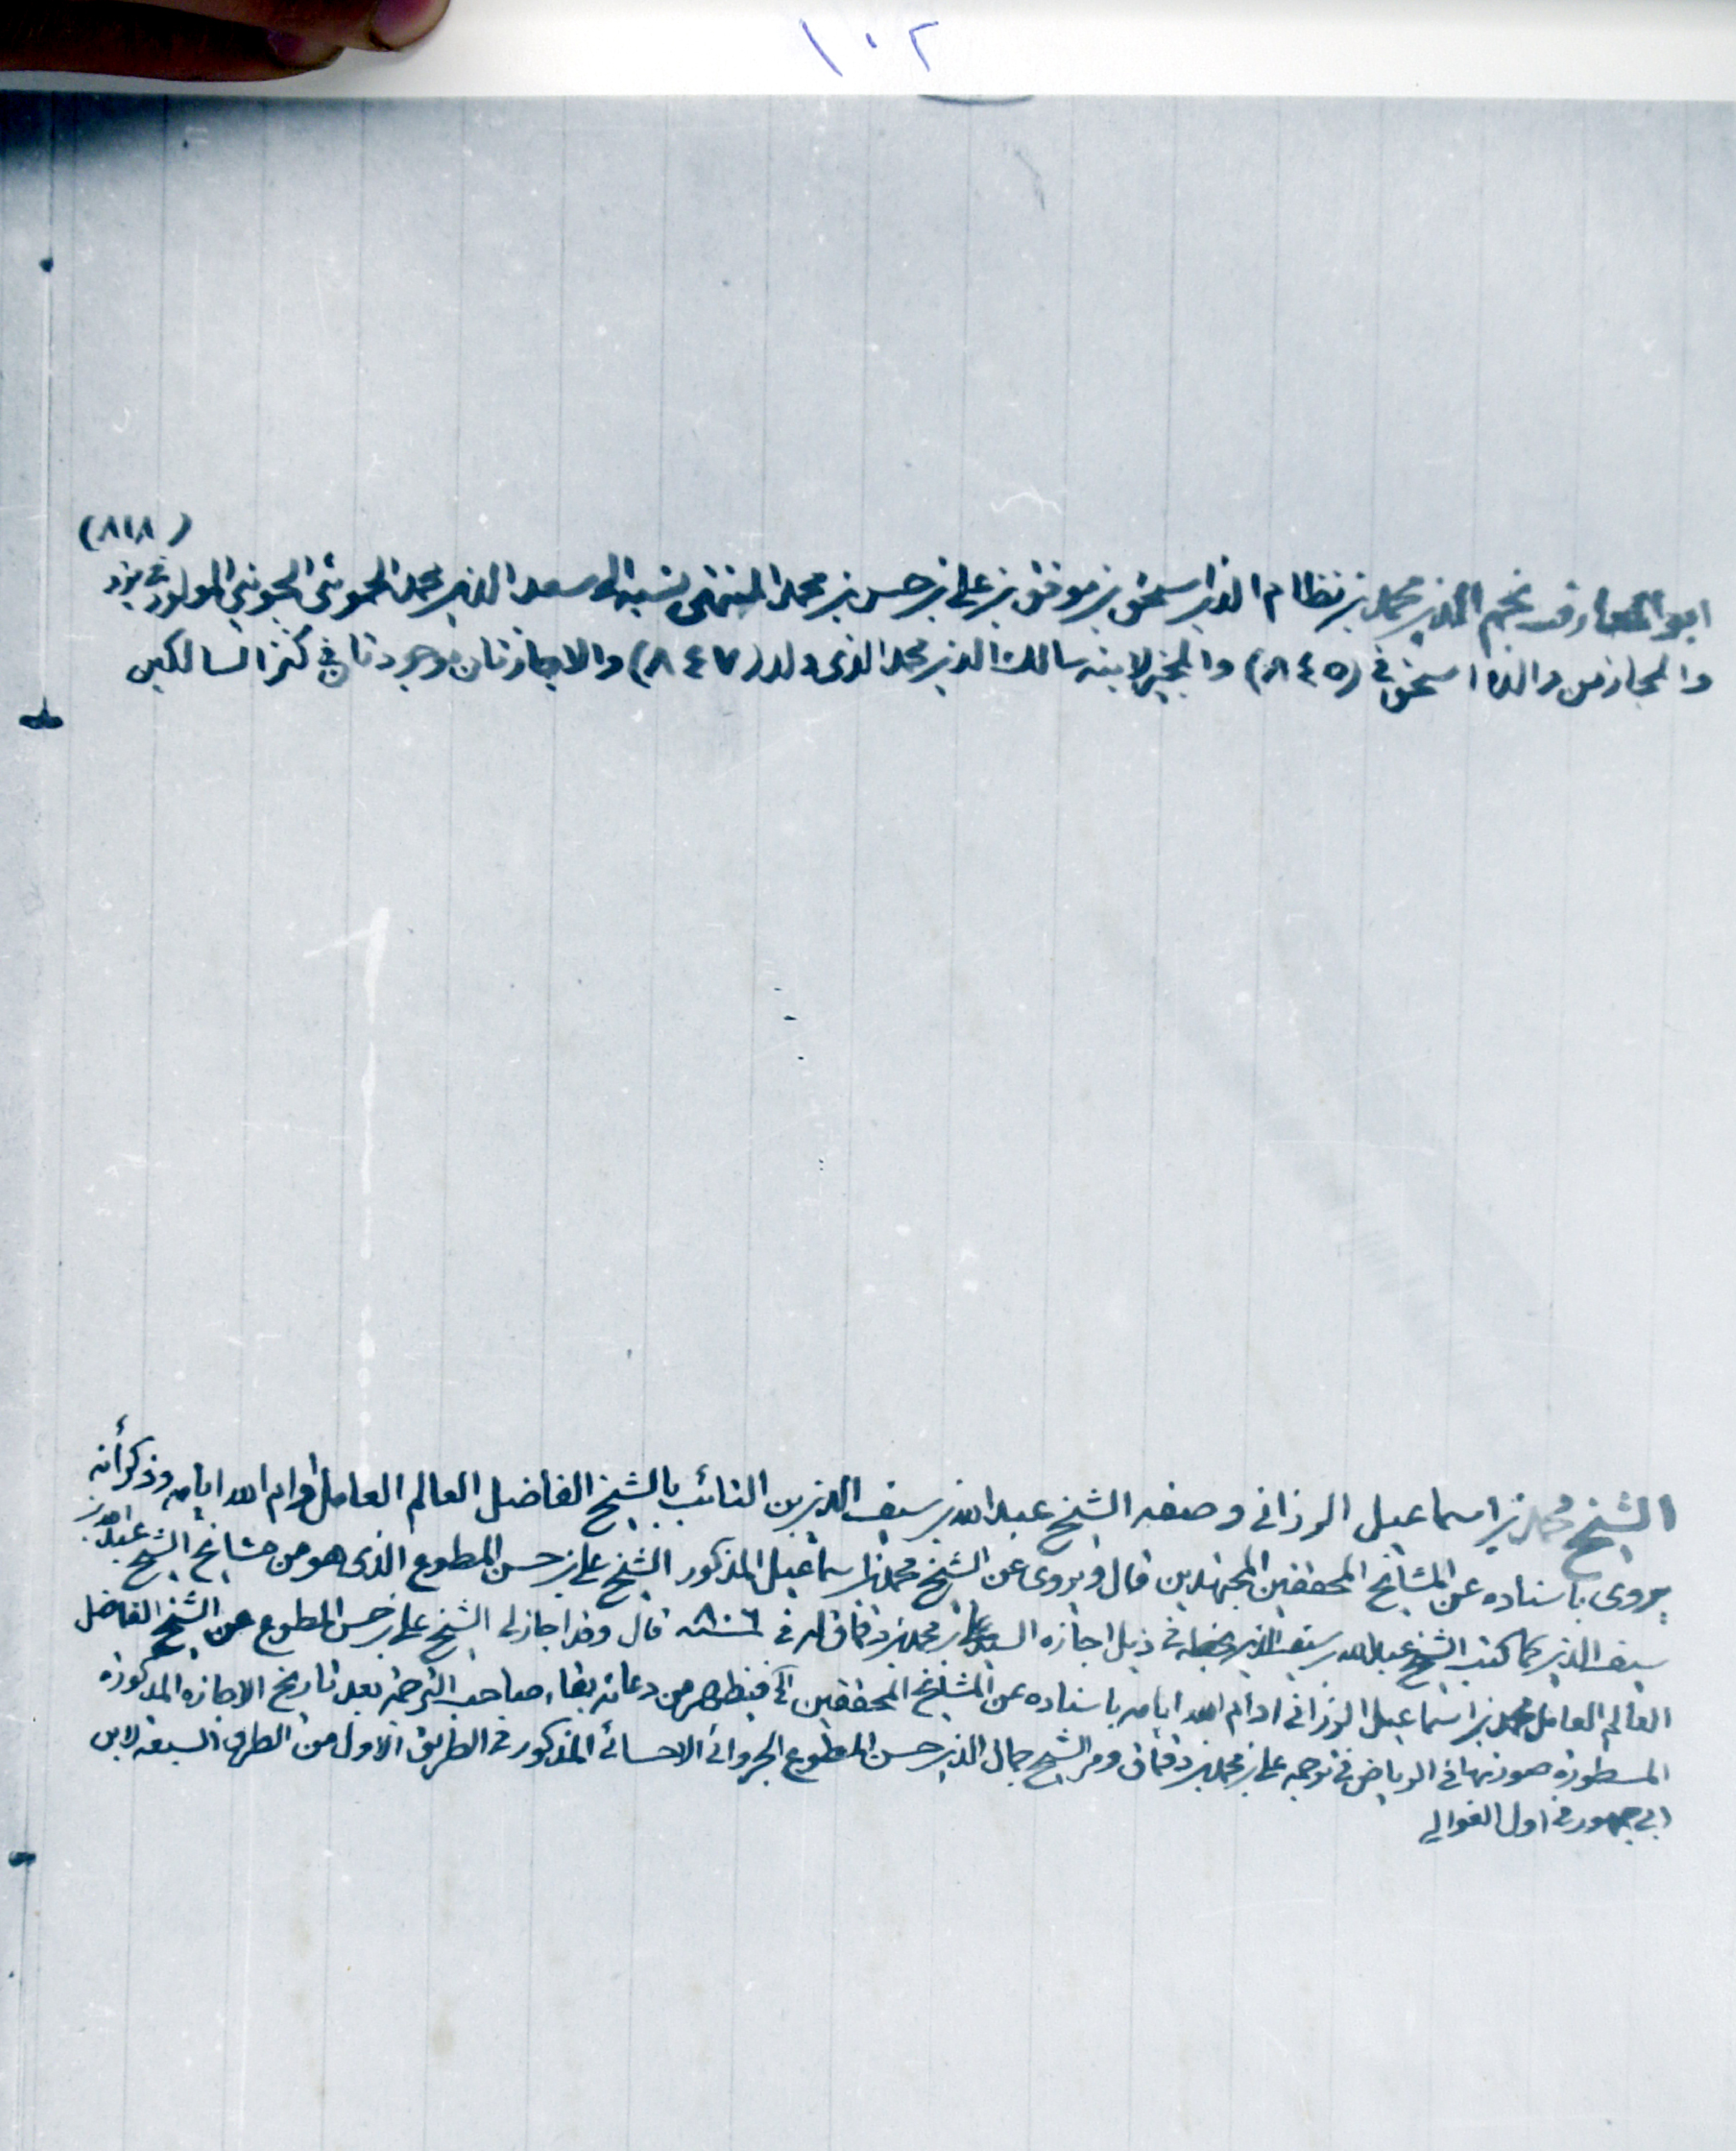 ١٠٢
(٨١٨)
ابو المعارف نجم الدين محمد بن نظام الدين اسحق بن موفق بن علي بن حسن بن محمد المنتهى نسبه الى سعد الدين محمد الحموئي الجويني المولود في يزد
والمجاز من والده اسحق في (٨٤٥) والمجيز لابنه سالك الدين محمد الذي ولد (٨٤٧) والاجازتان موجودتان في كنز السالكين
الشيخ محمد بن اسماعيل الرزانى وصفه الشيخ عبدالله بن سيف الدين بن النائب بالشيخ الفاضل العالم العامل ادام الله ايامه وذكر أنه
يروى باسناده عن المشايخ المحققين المجتهدين قال ويروى عن الشيخ محمد بن اسماعيل المذكور الشيخ علي بن حسن المطوع الذى هو من مشايخ الشيخ عبدالله بن
سيف الدين كما كتب الشيخ عبدالله بن سيف الدين بخطه في ذيل اجازه السيد علي بن محمد بن دقماق له في ٨٠٦ قال وقد اجاز لى الشيخ علي بن حسن المطوع عن الشيخ الفاضل
العالم العامل محمد بن اسماعيل الرزانى ادام الله ايامه باسناده عن المشايخ المحققين الخ فيظهر من دعائه بقاء صاحب الترجمة بعد تاريخ الاجازه المذكورة
المسطورة صورتها في الرياض في ترجمه علي بن محمد بن دقماق ومر الشيخ جمال الدين حسن المطوع الجروانى الاحسائى المذكور في الطريق الاول من الطرق السبعه لابن
ابي جمهور في اول الغوالي